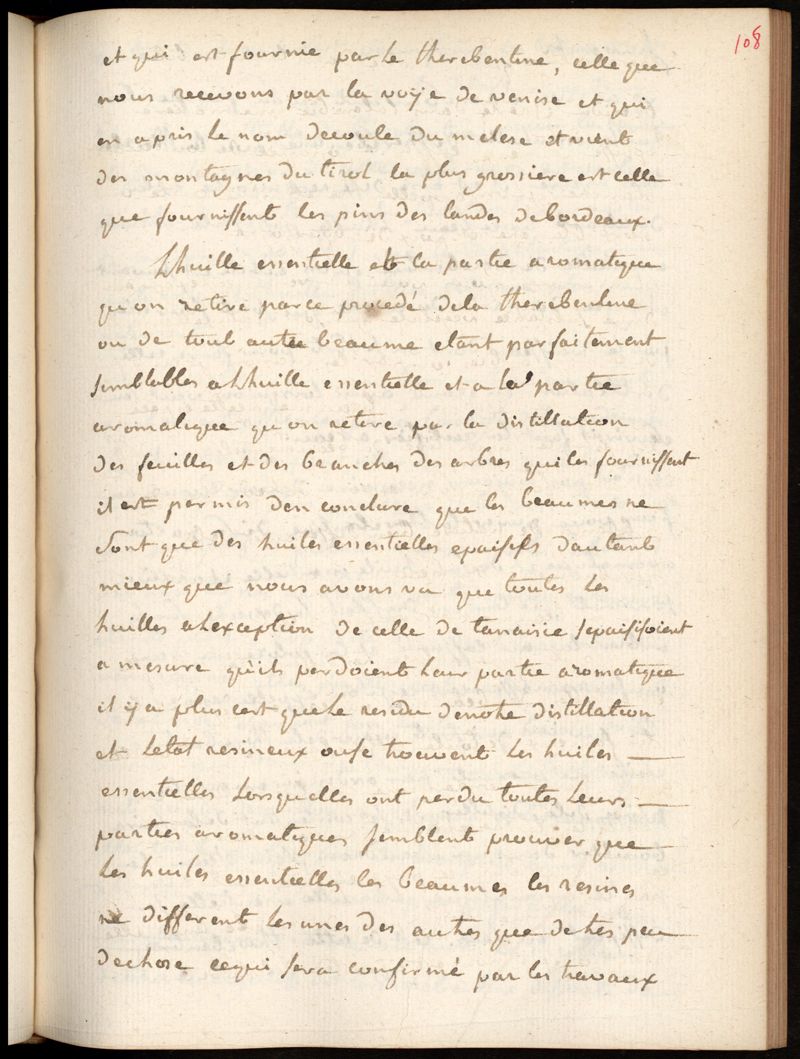 108
et qui est fournie par le therebentine, celle que
nous recevons par la voye de venise et qui
en a pris le nom decoule du melese et vient
des montagnes du tirol la plus grossiere est celle
que fournissent les pins des landes de bordeaux.
Lhuille essentielle et la partie aromatique
qu on retire par ce procedé de la therebentine
ou de tout autre beaume etant parfaitement
semblables a Lhuille essentielle et a la partie
aromatique qu on retire par la distillation
des feuilles et des branches des arbres qui les fournissent
il est permis den conclure que les beaumes ne
sont que des huiles essentielles epaissies dautant
mieux que nous avons vu que toutes les
huilles a Lexception de celle de tanaisie sepaissisoient
a mesure quils perdoient leur partie aromatique
il y a plus cest que Le residu de notre distillation
et Letat resineux ou se trouvent les huiles —
essentielles Lorsquelles ont perdu toutes Leurs —
parties aromatiques semblent prouver que
Les huiles essentielles les beaumes les resines
ne different les unes des autres que de tres peu
de chose ce qui sera confirmé par les travaux